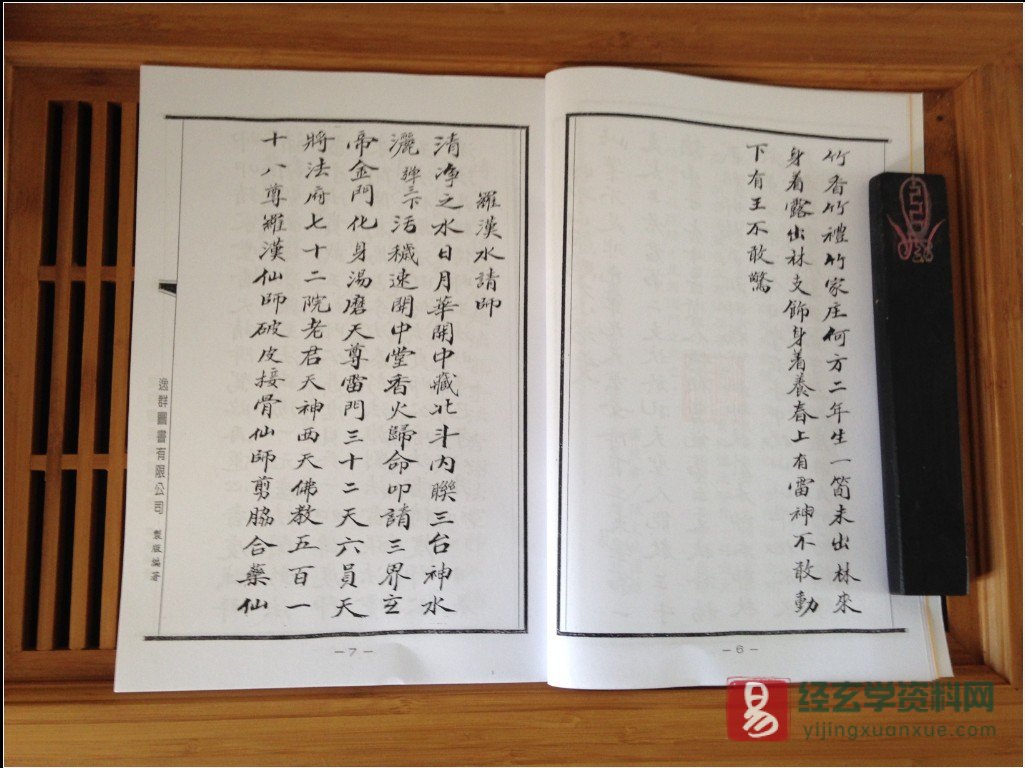 竹香竹禮竹家庄何方二年生一箇未出林來
身着露出林支飾身着養春上有雷神不敢動
下有王不敢驚
－6－
羅漢水請師
清淨之水日月華開中藏北斗內聯三台神水
灑彈三下活穢速開中堂香火歸命叩請三界玄
帝金門化身湯磨天尊雷門三十二天六員天
將法府七十二院老君天神西天佛教五百一
十八尊羅漢仙師破皮接骨仙師剪脇合藥仙
逸群圖書有限公司 製版編著
－7－
易
经玄学资料网
yijingxuanxue.com